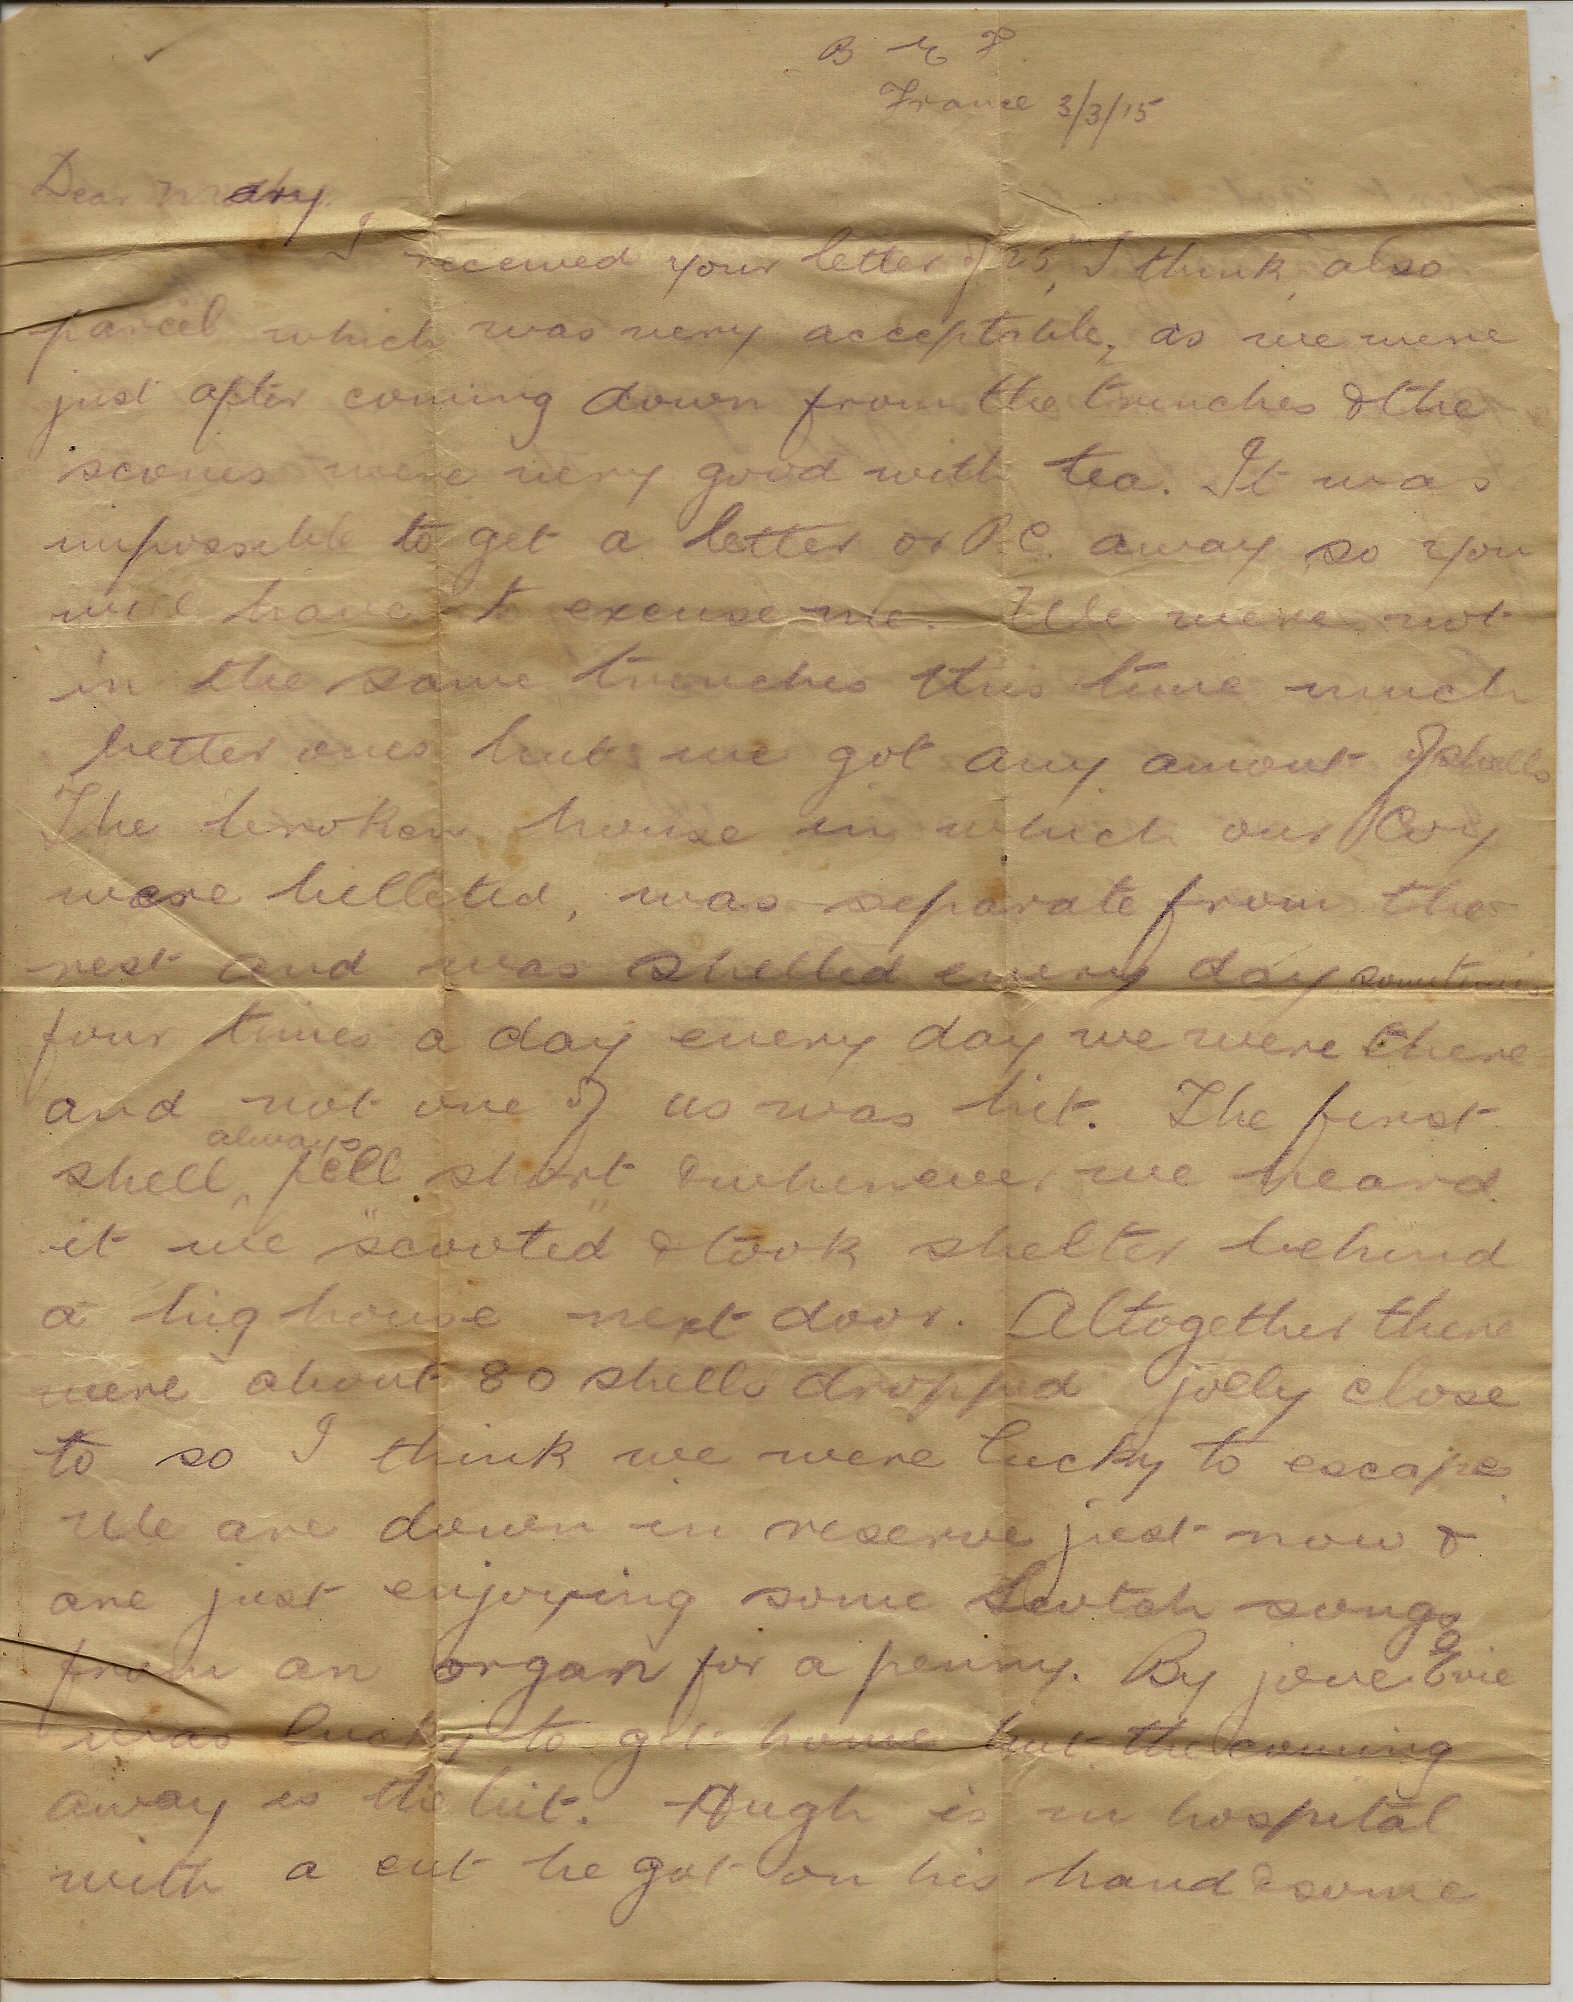 B E F
France 3/3/15
Dear Mary.
I received your letter of 25th, I think, also
parcel which was very acceptable, as we were
just after coming down from the trenches & the
scones were very good with tea. It was
impossible to get a letter or P.C. away so you
will have to excuse me. We were not
in the same trenches this time much
better ones but we got any amout of shells
The broken house in which our Coy
were billeted, was separate from the
rest and was shelled every day sometimes
four times a day every day we were there
and not one of us was hit. The first
shell always fell short & whenever we heard
it we "scooted" & took shelter behind
a big house next door. Altogether there
were about 80 shells dropped jolly close
to so I think we were lucky to escape.
We are down in reserve just now &
are just enjoying some Scotch songs
from an organ for a penny. By jove Evie
was lucky to get home but the coming
away is the bit. Hugh is in hospital
with a cut he got on his hand & some